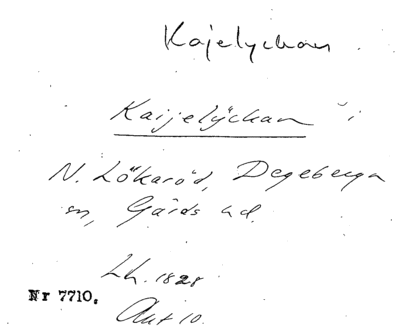 Kajelyckan
Kaijelÿckan i
N. Lökaröd, Degeberga
sn, Gärds hd.
Lh. 1828
Nr 7710.
Akt 10.